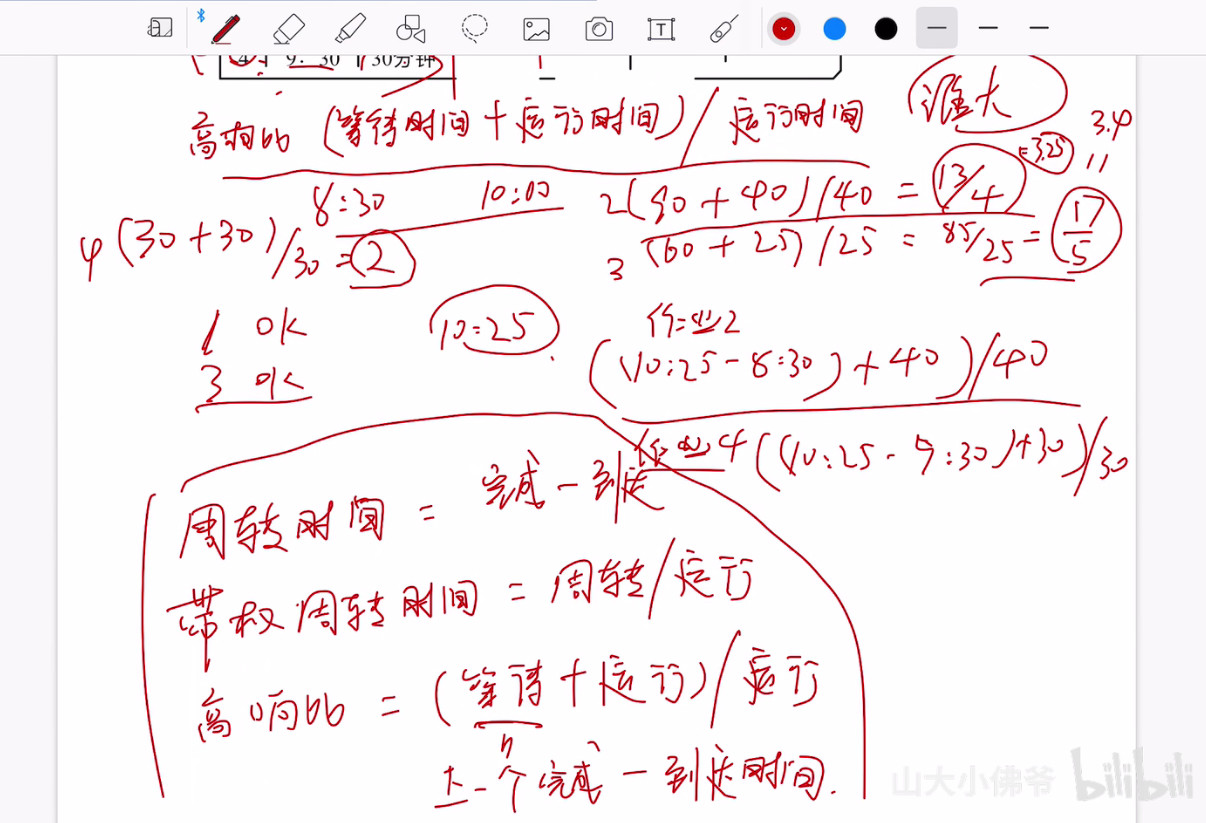 4 9:30 30分钟
高响比 (等待时间+运行时间)/运行时间
谁大
8:30 10:00
2(90+40)/40=13/4
=3.25
3.4
=
4(30+30)/30=2
3(60+25)/25=85/25=17/5
1 ok
10:25
作业2
3 ok
(10:25-8:30)+40)/40
作业4((10:25-9:30)+30)/30
周转时间=完成-到达
带权周转时间=周转/运行
高响比=(等待+运行)/运行
上一个完成-到达时间.
山大小佛爷 bilibili